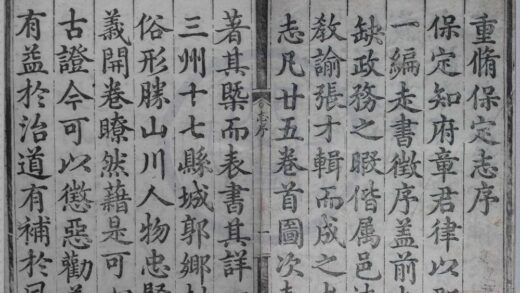 重脩保定志序
保定知府章君律以
一編走書徵序盖前
缺政務之暇偕属邑
敎諭張才輯而成之
志凡廿五卷首圖次
志序
一
著其槩而表書其詳
三州十七縣城郭鄉
俗形勝山川人物忠
義開卷瞭然藉是可
古證今可以懲惡勸
有益於治道有補於